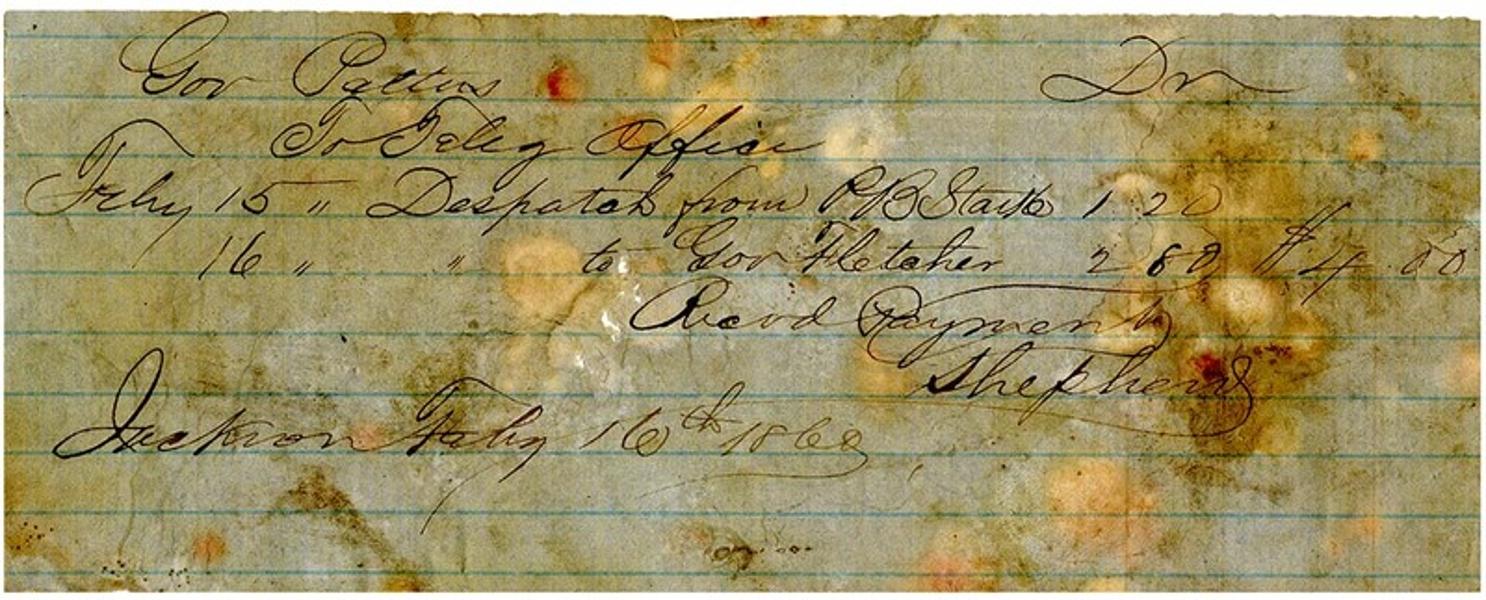 Gov Pettus Dr
To Teleg Office
Feby 15 " Despatch from P B Stark 1 20
16 " " to Gov Fletcher 2 80 $4.00
Recvd Payment
Shepherd
Jackson Feby 16th 186